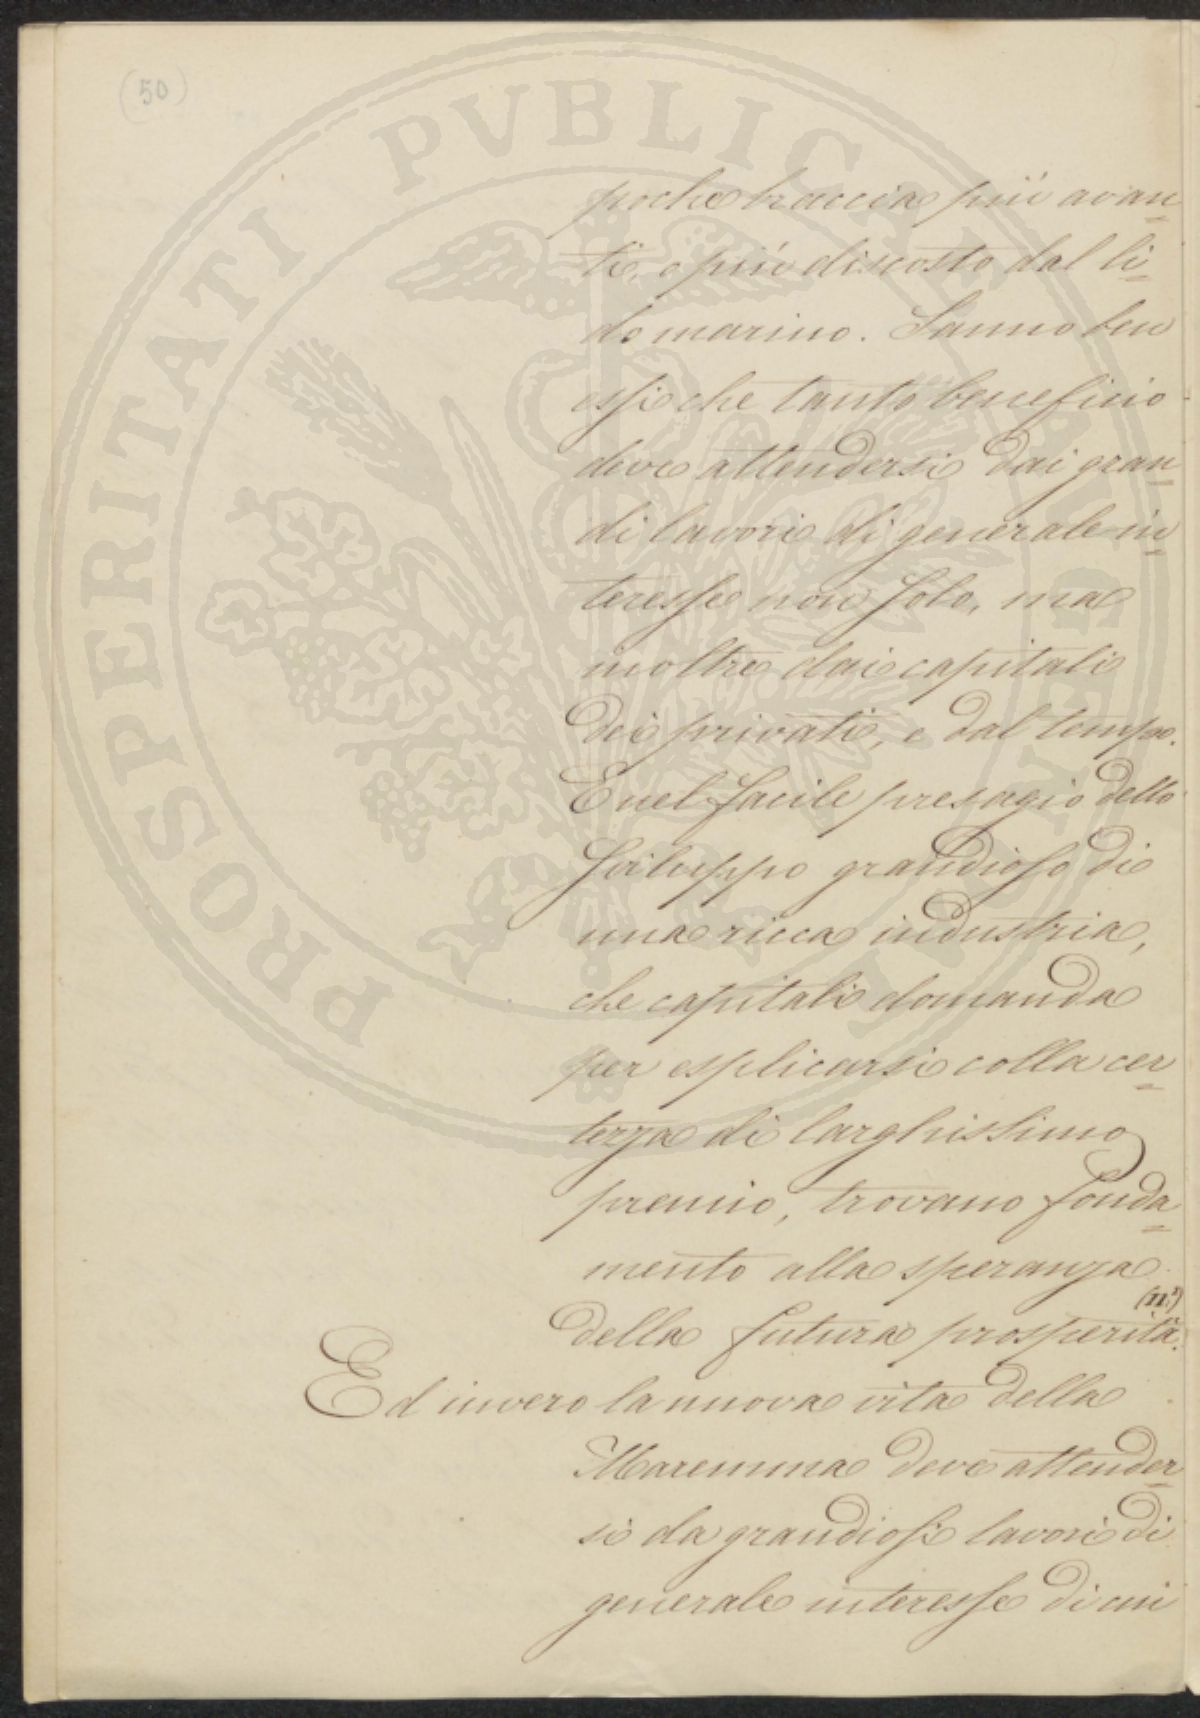 (50)
poche braccia più avan
ti, o più discosto dal li
do marino. Sanno ben
essi che tanto beneficio
deve attendersi dai gran
di lavori di generale in
teresse non solo, ma
inoltre dai capitali
dei privati, e dal tempo.
E nel facile presagio dello
sviluppo grandioso di
una ricca industria,
che capitali domanda
per esplicarsi colla cer
tezza di larghissimo
premio, trovano fonda
mento alla speranza
della futura prosperità. (11.ª)
Ed invero la nuova vita della
Maremma deve attender
si da grandiosi lavori di
generale interesse di cui
PROSPERITATI PVBLICAE AVGENDAE